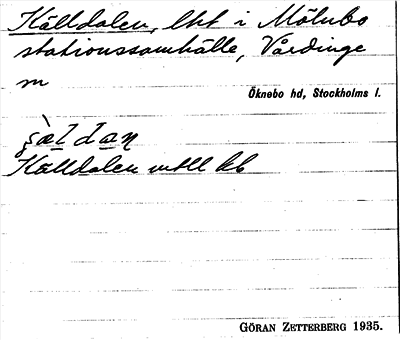 Källdalen, lht i Mölnbo
stationssamhälle, Vårdinge
sn
Öknebo hd, Stockholms l.
Källdalen mtll kb
GÖRAN ZETTERBERG 1935.